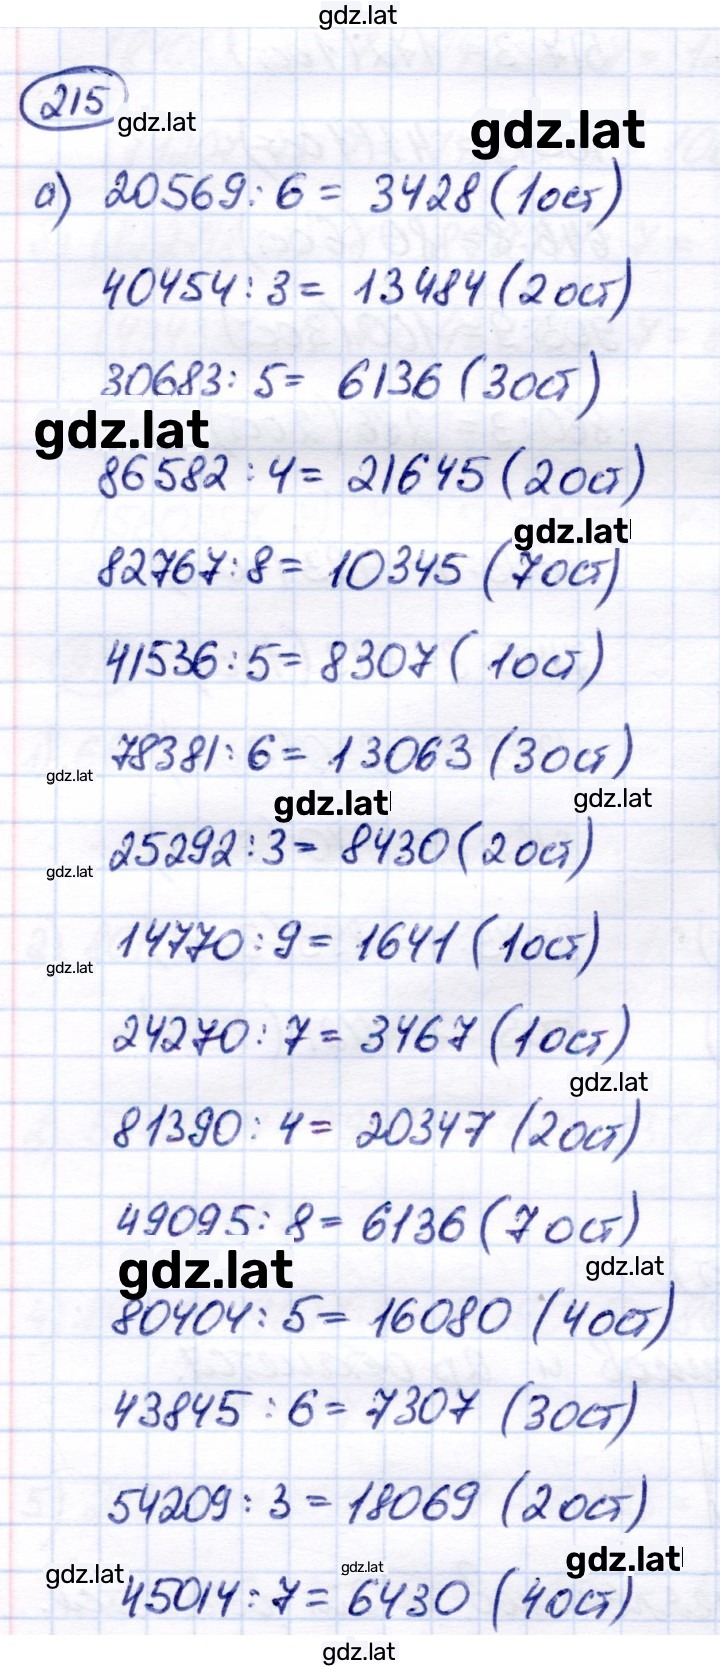 gdz.lat
215
gdz.lat
gdz.lat
а) 20569 : 6 = 3428 (1ост)
40454 : 3 = 13484 (2ост)
30683 : 5 = 6136 (3ост)
gdz.lat
86582 : 4 = 21645 (2ост)
gdz.lat
82767 : 8 = 10345 (7ост)
41536 : 5 = 8307 (1ост)
78381 : 6 = 13063 (3ост)
gdz.lat
gdz.lat
gdz.lat
25292 : 3 = 8430 (2ост)
gdz.lat
14770 : 9 = 1641 (1ост)
gdz.lat
24270 : 7 = 3467 (1ост)
gdz.lat
81390 : 4 = 20347 (2ост)
49095 : 8 = 6136 (7ост)
gdz.lat
gdz.lat
80404 : 5 = 16080 (4ост)
43845 : 6 = 7307 (3ост)
54209 : 3 = 18069 (2ост)
gdz.lat
gdz.lat
gdz.lat
45014 : 7 = 6430 (4ост)
gdz.lat